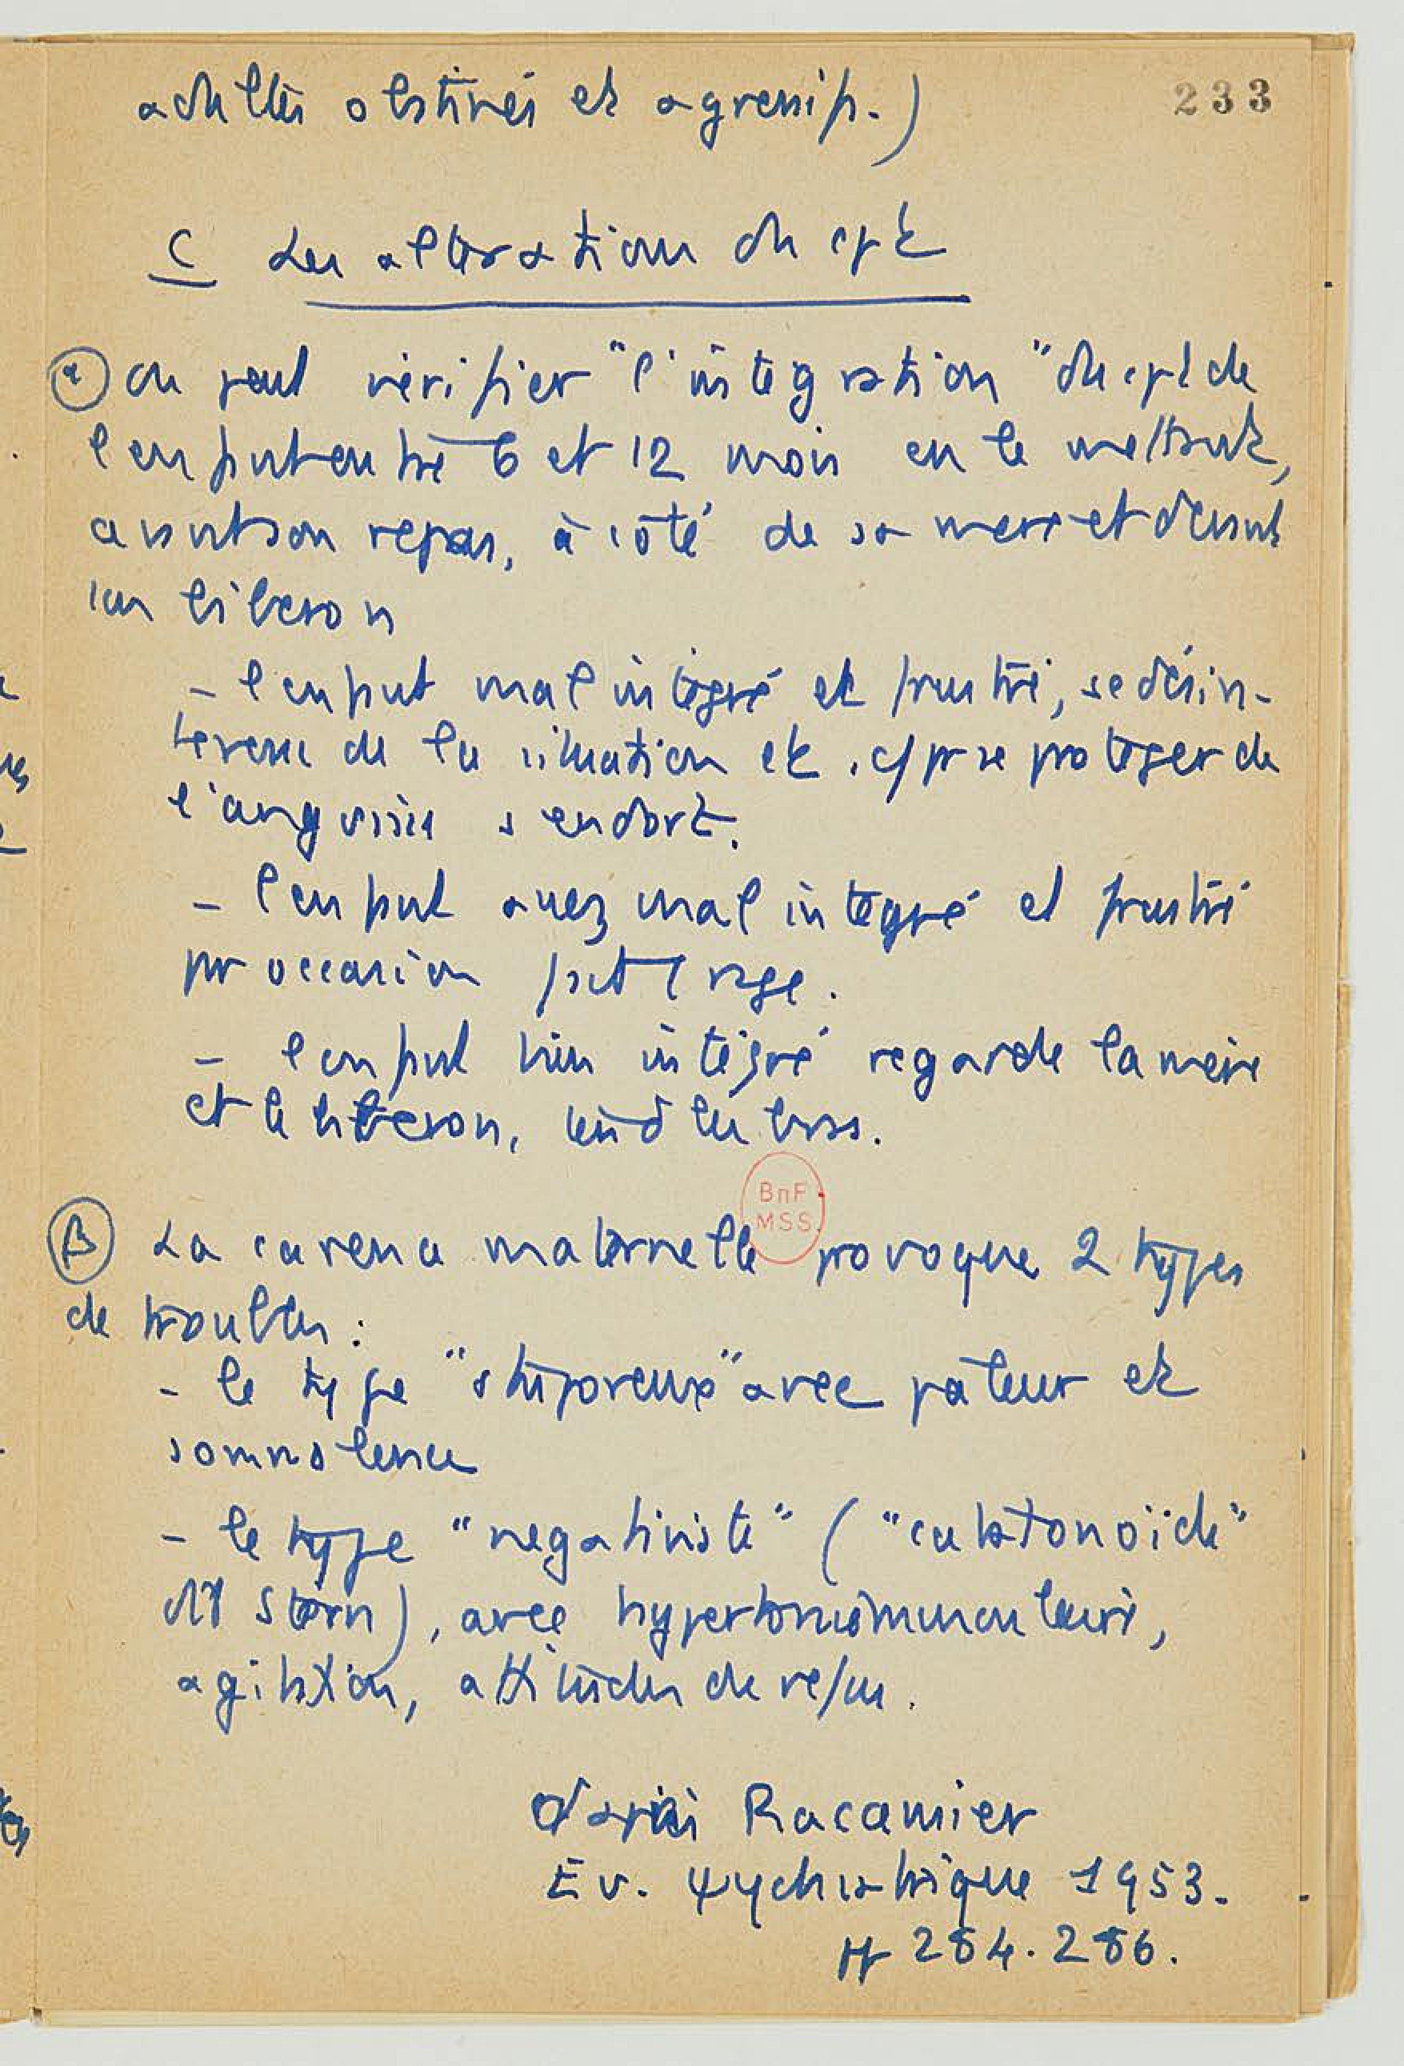 adultes obstinés et agressifs.)
233
C Les altérations du cpt
α On peut vérifier "l'intégration" du cpt de
l'enfant entre 6 et 12 mois en le mettant,
avant son repas, à côté de sa mère et devant
son biberon
- l'enfant mal intégré et frustré, se désin-
téresse de la situation et, pr se protéger de
l'angoisse s'endort.
- l'enfant assez mal intégré et frustré
pr occasion fait rage.
- l'enfant bien intégré regarde la mère
et le biberon, tend les bras.
BnF
MSS
β La carence maternelle provoque 2 types
de troubles :
- le type "stuporeux" avec pâleur et
somnolence
- le type "négativiste" ("catatonoïde"
dit Stern), avec hypertonie musculaire,
agitation, attitudes de refus.
d'après Racamier
Ev. ψychiatrique 1953.
pp 284.286.